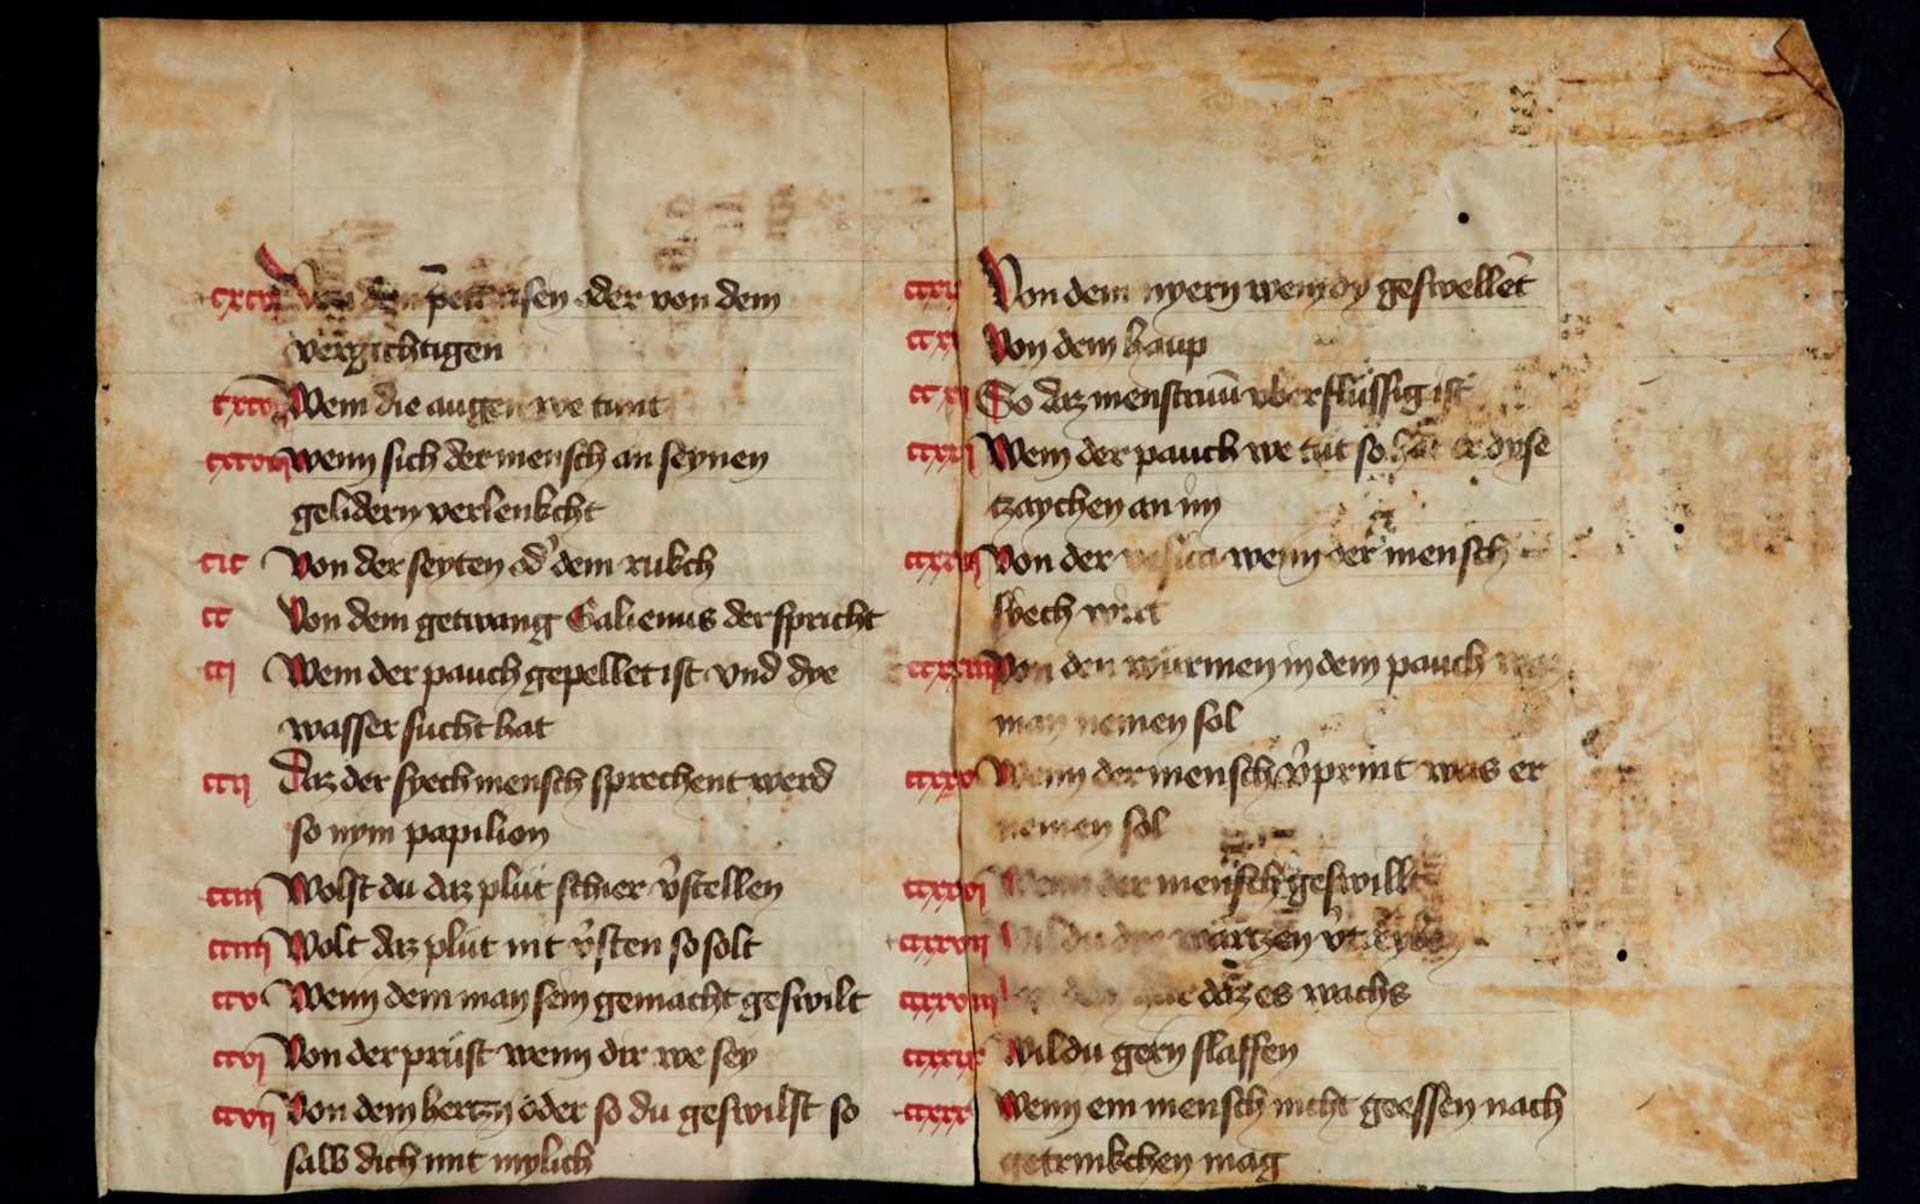 oder von dem
vergichtigen
Wem die augen we tunt
wenn sich der mensch an seynen
gelidern verlenkcht
cic Von der seyten od' dem rukch
cc Von dem getwang Galienus der spricht
cci Wem der pauch gepellet ist vnd dye
wasser sucht hat
ccii Daz der syech mensch sprechent werd
so nym papilion
cciii Wolst du daz plüt schier v̓stellen
cciiii Wolt daz plüt nit v̓sten so solt
ccv Wenn dem man sein gemacht geswilt
ccvi Von der prüst wenn dir we sey
ccvii Von dem hertzn oder so du geswilst so
salb dich mit mylich
Von dem nyern wenn dy geswellēt
Von dem haup
So daz menstruū vberflüssig ist
Wem der pauch we tüt so hat er dyse
tzaychen an im
Von der wenn der mensch
syech wirt
Von den würmen in dem pauch waz
man nemen sol
Wenn der mensch v̓print was er
nemen sol
Wenn der mensch geswillt
ccxxvii Wildu dye wartzen
ccxxviii daz es wachs
ccxxix Wildu gern slaffen
ccxxx Wenn ein mensch nicht geessen nach
getrinkchen mag